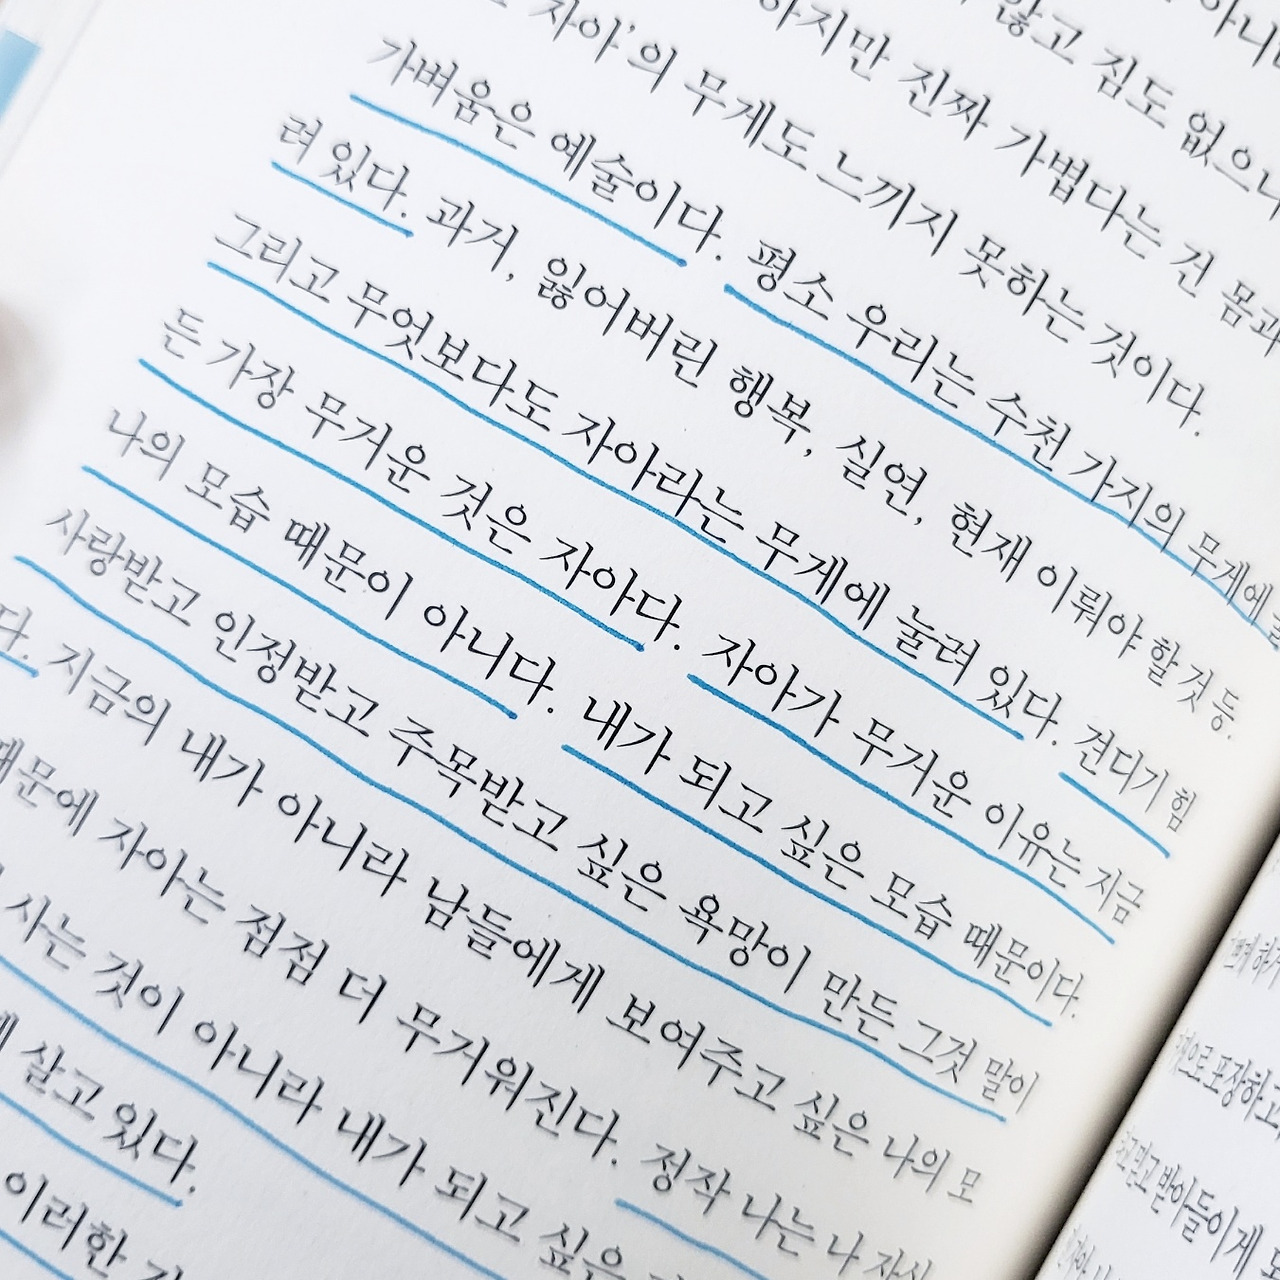 않고 짐도 없으니
하지만 진짜 가볍다는 건 몸과
자아'의 무게도 느끼지 못하는 것이다.
가벼움은 예술이다. 평소 우리는 수천 가지의 무게에
려 있다. 과거, 잃어버린 행복, 실연, 현재 이뤄야 할 것 등.
그리고 무엇보다도 자아라는 무게에 눌려 있다. 견디기 힘
든 가장 무거운 것은 자아다. 자아가 무거운 이유는 지금
나의 모습 때문이 아니다. 내가 되고 싶은 모습 때문이다.
사랑받고 인정받고 주목받고 싶은 욕망이 만든 그것 말이
다. 지금의 내가 아니라 남들에게 보여주고 싶은 나의 모
때문에 자아는 점점 더 무거워진다. 정작 나는 나 자신
사는 것이 아니라 내가 되고 싶은
살고 있다.
이러한
으로 포장하고
받아들이게